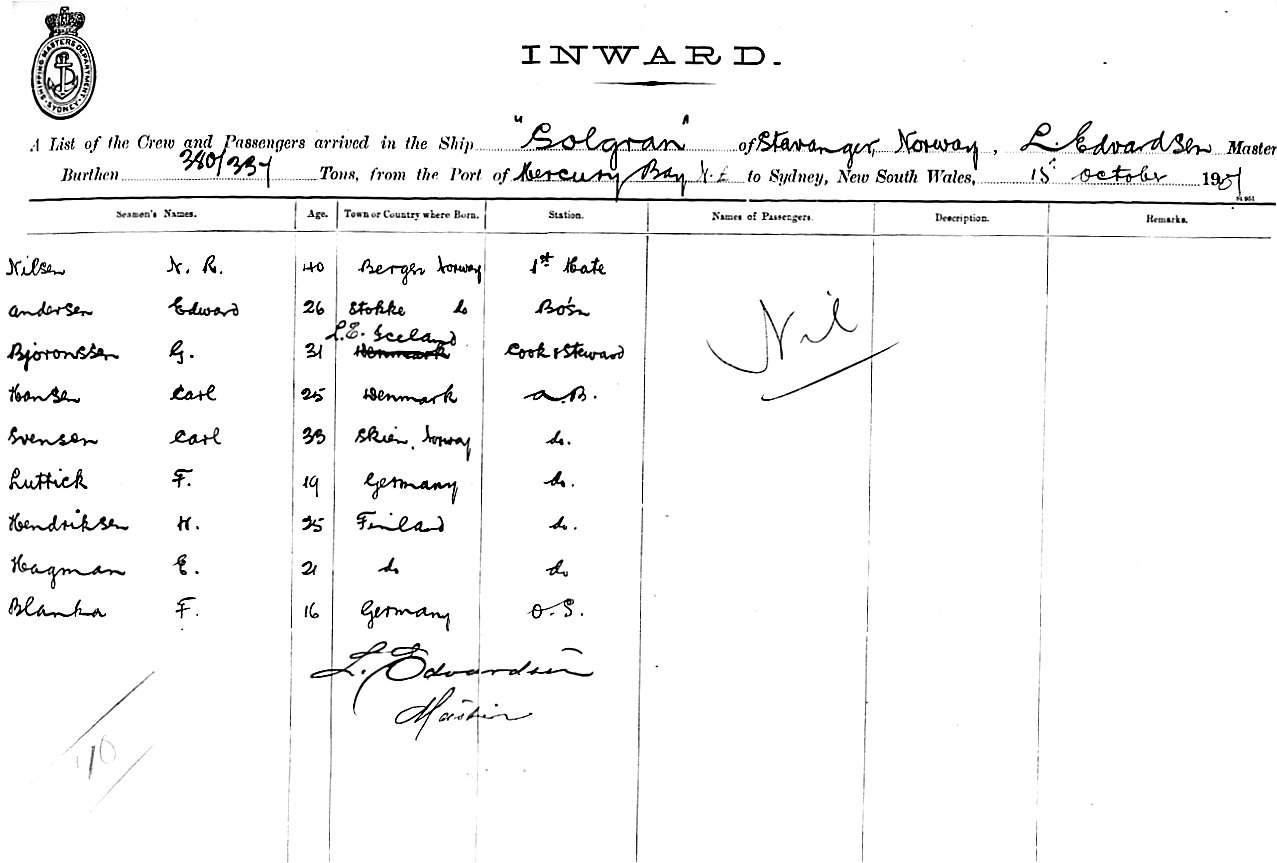 SHIPPING MASTERS DEPARTMENT SYDNEY
INWARD.
A List of the Crew and Passengers arrived in the Ship "Solgran" of Stavanger, Norway, L. Edvardsen Master
Burthen 380/337 Tons, from the Port of Mercury Bay N.Z. to Sydney, New South Wales, 15 October 190
Seamen's Names. Age. Town or Country where Born. Station. Names of Passengers. Description. Remarks.
Nilsen N. R. 40 Bergen Norway 1st Mate
Andersen Edward 26 Stokke do Bo'sn
L.E. Iceland
Bjoronssen G. 31 Denmark Cook & Steward
Nil
Hansen Carl 25 Denmark A.B.
Svensen Carl 33 Skien, Norway do.
Luttick F. 19 Germany do.
Hendriksen H. 25 Finland do.
Hagman E. 21 do do
Blanka F. 16 Germany O.S.
L. Edvardsen
Master
10